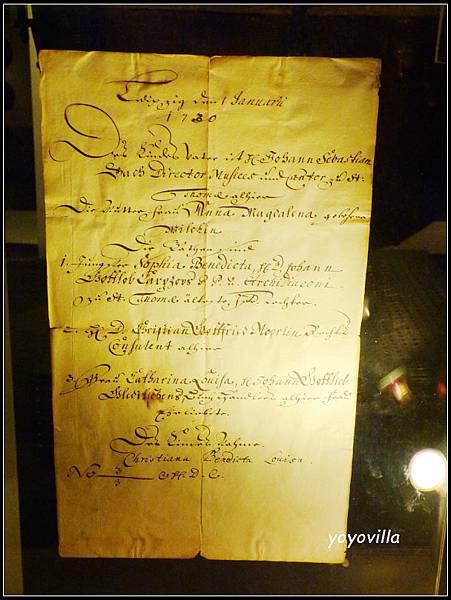 Leipzig den 1 Januarii
1730
Des Kindes Vater ist H. Johann Sebastian
Bach Director Musices und Cantor zu St.
Thomæ alhier
Die Mutter Frau Anna Magdalena gebohrne
Die Pathen sind
1. Jungfer Sophia Benedicta, H. D. Johann
Gottlob Carpzovs Archidiaconi
zu St. Thomæ älteste Tochter.
2. H. D. Christian
Consulent alhier
3. Frau Catharina Louisa, H. Johann Gottlob
alhier
Des Kindes Nahme.
Christiana Benedicta Louisa.
No 3
3
yoyovilla